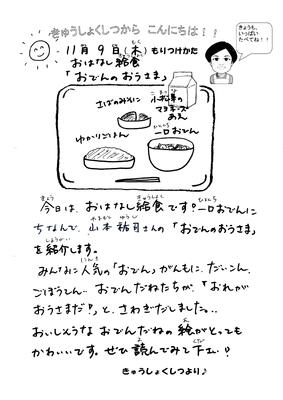 きゅうしょくしつから こんにちは！！
きょうも、
いっぱい
たべてね！！
11月9日(木)もりつけかた
おはなし給食
「おでんのおうさま」
さばのみそに
小松菜の
マヨネーズ
あえ
ゆかりごはん
一口おでん
今日は、おはなし給食です！一口おでんに
ちなんで、山本祐司さんの「おでんのおうさま」
を紹介します。
みんなに人気の「おでん」。がんもに、だいこん、
ごぼうてん… おでんだねたちが、「おれが
おうさまだ！」と、さわぎだしました…。
おいしそうな おでんだねの絵がとっても
かわいいです。ぜひ読んでみて下さい！
きゅうしょくしつより♪